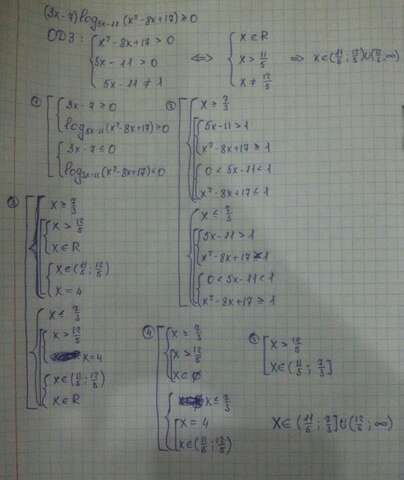 (3x-7)log₅ₓ₋₁₁(x²-8x+17)≥0
ОДЗ: { x²-8x+17>0 ⟺ { x∈R
5x-11>0 x>11/5 ⇒ x∈(11/5; 12/5)∪(12/5; ∞)
5x-11≠1 x≠12/5
① [ { 3x-7≥0
log₅ₓ₋₁₁(x²-8x+17)≥0
{ 3x-7≤0
log₅ₓ₋₁₁(x²-8x+17)≤0
② [ { x≥7/3
[ { 5x-11>1
x²-8x+17≥1
{ 0<5x-11<1
x²-8x+17≤1
{ x≤7/3
[ { 5x-11>1
x²-8x+17≤1
{ 0<5x-11<1
x²-8x+17≥1
③ [ { x≥7/3
[ { x>12/5
x∈R
{ x∈(11/5; 12/5)
x=4
{ x≤7/3
[ { x>12/5
x=4
{ x∈(11/5; 12/5)
x∈R
④ [ { x≥7/3
[ x>12/5
x∈∅
{ x≤7/3
[ x=4
x∈(11/5; 12/5)
⑤ [ x>12/5
x∈(11/5; 7/3]
x∈(11/5; 7/3]∪(12/5; ∞)